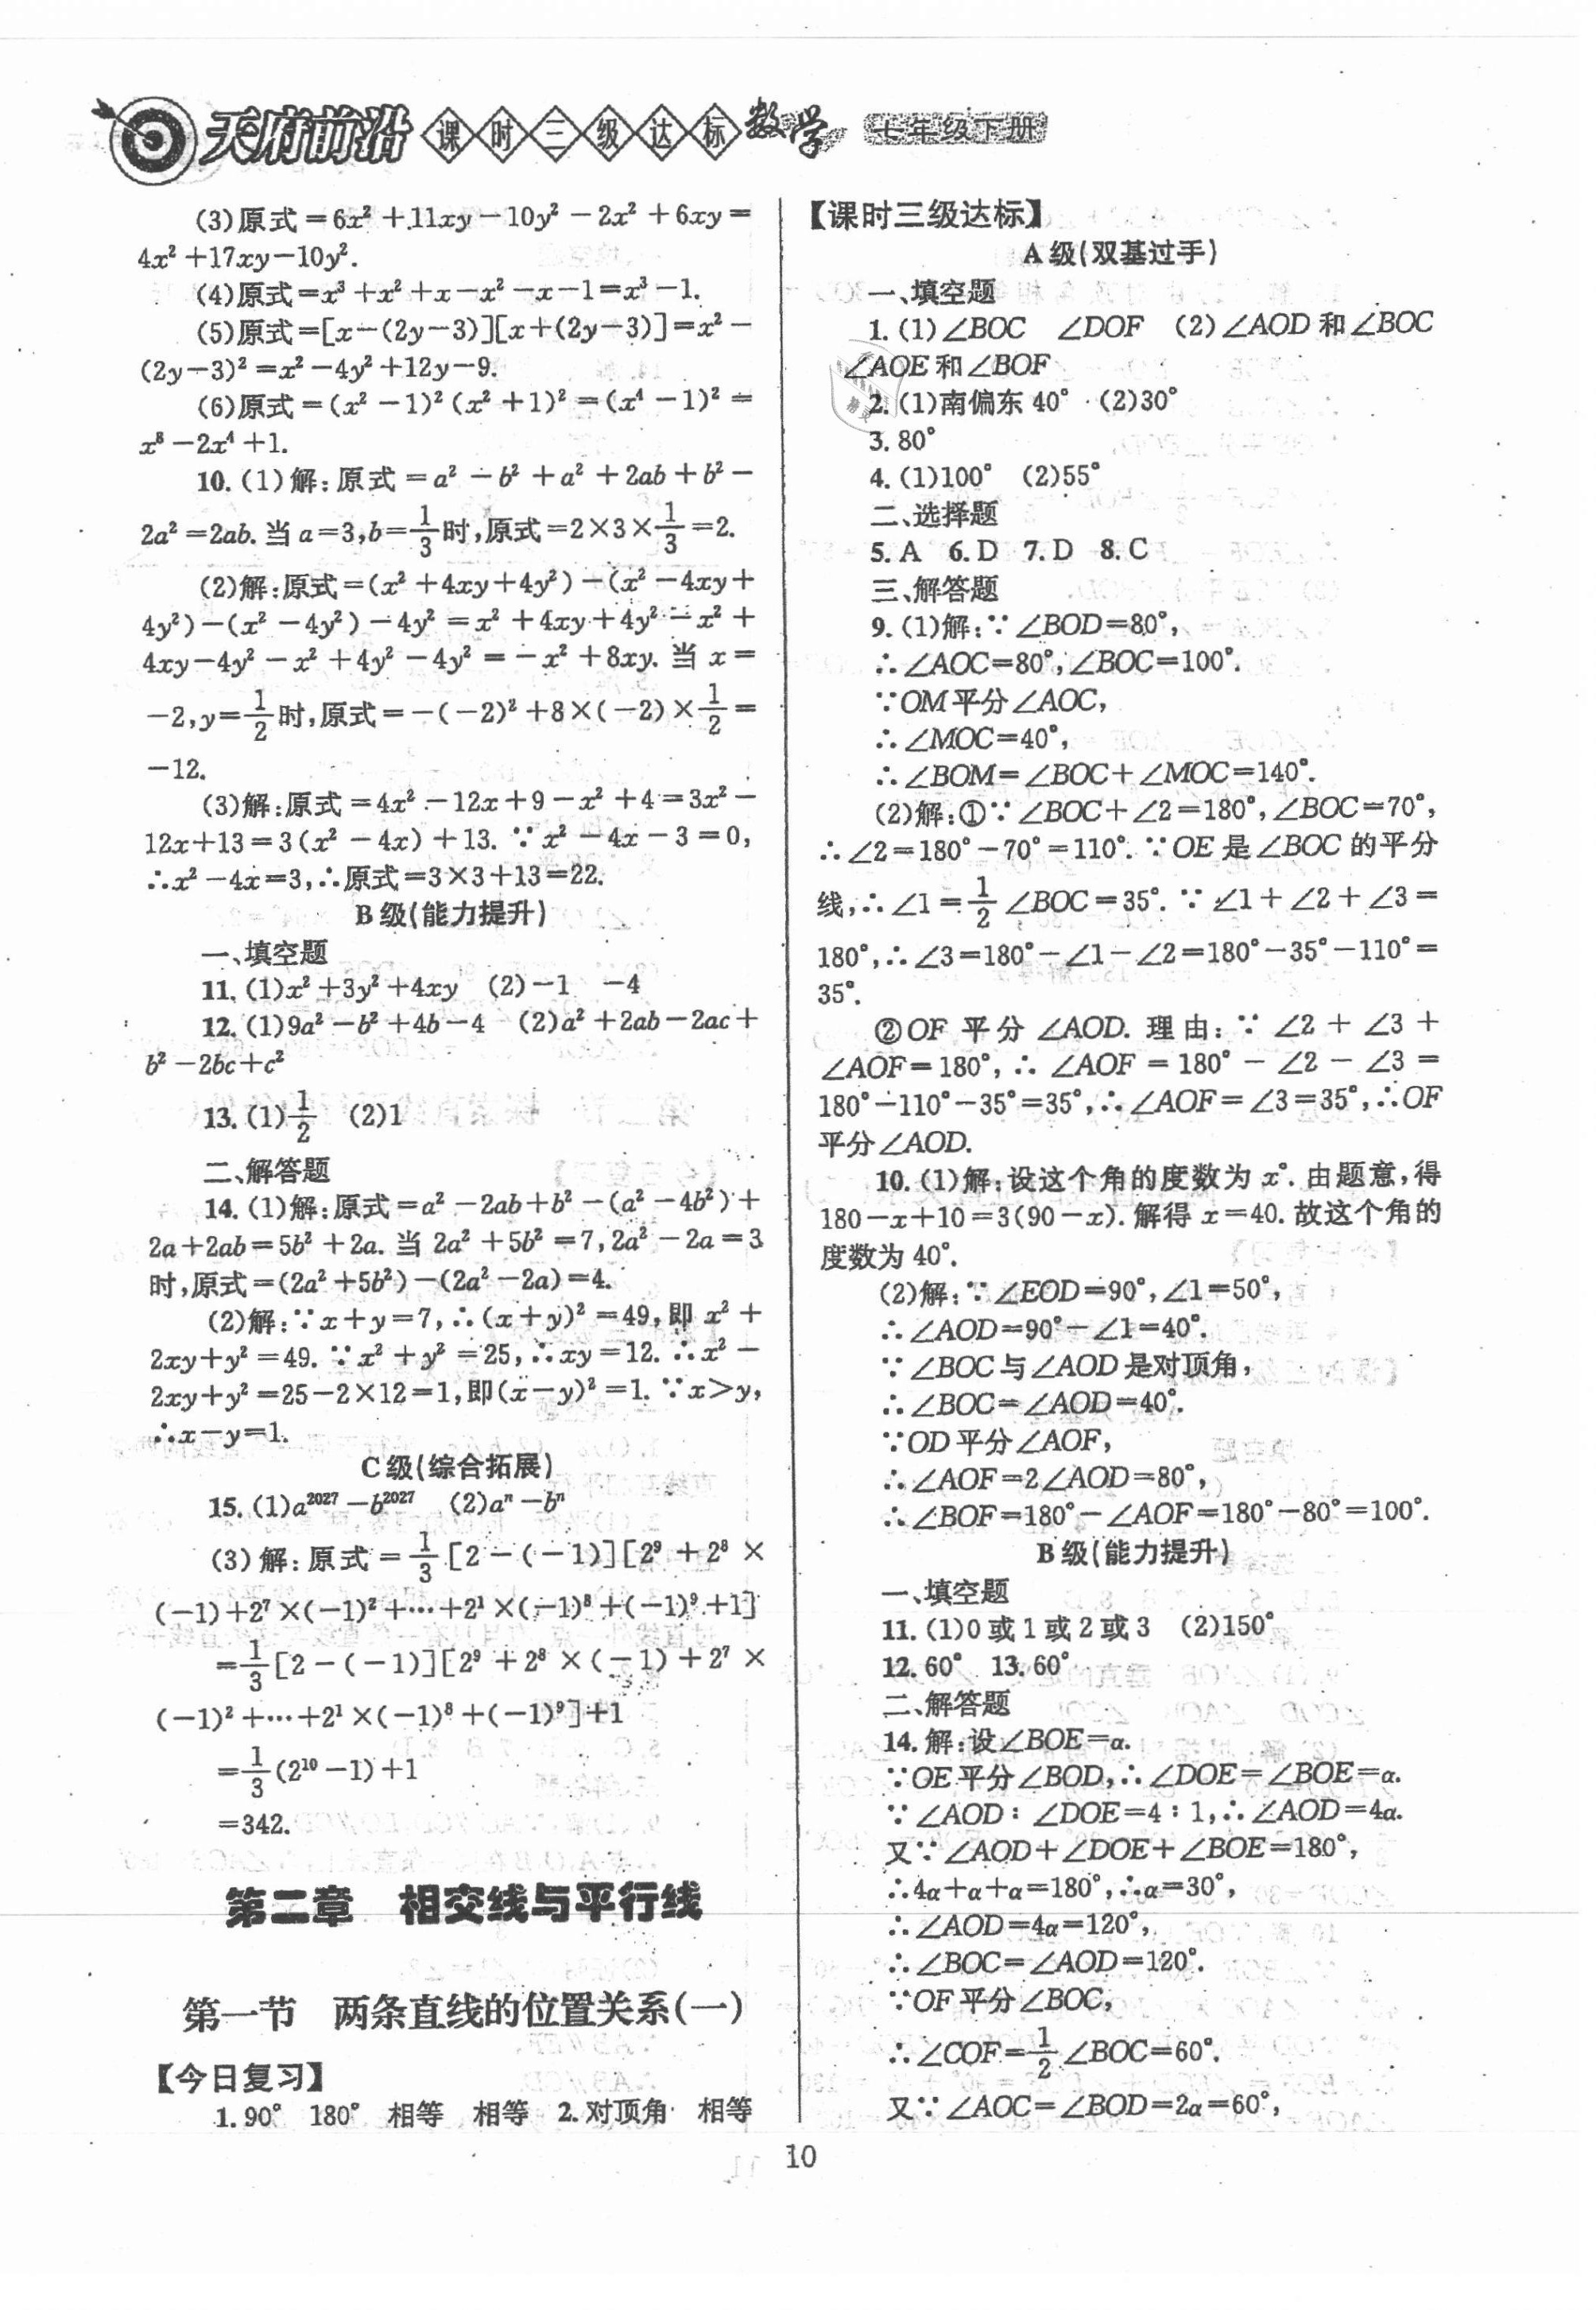 天府前沿 课时三级达标 数学 七年级下册
(3)原式＝6x²＋11xy－10y²－2x²＋6xy＝
4x²＋17xy－10y².
(4)原式＝x³＋x²＋x－x²－x－1＝x³－1.
(5)原式＝[x－(2y－3)][x＋(2y－3)]＝x²－
(2y－3)²＝x²－4y²＋12y－9.
(6)原式＝(x²－1)²(x²＋1)²＝(x⁴－1)²＝
x⁸－2x⁴＋1.
10.(1)解:原式＝a²－b²＋a²＋2ab＋b²－
2a²＝2ab.当a＝3,b＝1/3时,原式＝2×3×1/3＝2.
(2)解:原式＝(x²＋4xy＋4y²)－(x²－4xy＋
4y²)－(x²－4y²)－4y²＝x²＋4xy＋4y²－x²＋
4xy－4y²－x²＋4y²－4y²＝－x²＋8xy.当x＝
－2,y＝1/2时,原式＝－(－2)²＋8×(－2)×1/2＝
－12.
(3)解:原式＝4x²－12x＋9－x²＋4＝3x²－
12x＋13＝3(x²－4x)＋13.∵x²－4x－3＝0,
∴x²－4x＝3,∴原式＝3×3＋13＝22.
B级(能力提升)
一、填空题
11.(1)x²＋3y²＋4xy (2)－1 －4
12.(1)9a²－b²＋4b－4 (2)a²＋2ab－2ac＋
b²－2bc＋c²
13.(1)1/2 (2)1
二、解答题
14.(1)解:原式＝a²－2ab＋b²－(a²－4b²)＋
2a＋2ab＝5b²＋2a.当2a²＋5b²＝7,2a²－2a＝3
时,原式＝(2a²＋5b²)－(2a²－2a)＝4.
(2)解:∵x＋y＝7,∴(x＋y)²＝49,即x²＋
2xy＋y²＝49.∵x²＋y²＝25,∴xy＝12.∴x²－
2xy＋y²＝25－2×12＝1,即(x－y)²＝1.∵x>y,
∴x－y＝1.
C级(综合拓展)
15.(1)a²⁰²⁷－b²⁰²⁷ (2)aⁿ－bⁿ
(3)解:原式＝1/3[2－(－1)][2⁹＋2⁸×
(－1)＋2⁷×(－1)²＋…＋2¹×(－1)⁸＋(－1)⁹＋1]
＝1/3[2－(－1)][2⁹＋2⁸×(－1)＋2⁷×
(－1)²＋…＋2¹×(－1)⁸＋(－1)⁹]＋1
＝1/3(2¹⁰－1)＋1
＝342.
第二章 相交线与平行线
第一节 两条直线的位置关系(一)
【今日复习】
1.90° 180° 相等 相等 2.对顶角 相等
【课时三级达标】
A级(双基过手)
一、填空题
1.(1)∠BOC ∠DOF (2)∠AOD和∠BOC
∠AOE和∠BOF
2.(1)南偏东40° (2)30°
3.80°
4.(1)100° (2)55°
二、选择题
5.A 6.D 7.D 8.C
三、解答题
9.(1)解:∵∠BOD＝80°,
∴∠AOC＝80°,∠BOC＝100°.
∵OM平分∠AOC,
∴∠MOC＝40°,
∴∠BOM＝∠BOC＋∠MOC＝140°.
(2)解:①∵∠BOC＋∠2＝180°,∠BOC＝70°,
∴∠2＝180°－70°＝110°.∵OE是∠BOC的平分
线,∴∠1＝1/2∠BOC＝35°.∵∠1＋∠2＋∠3＝
180°,∴∠3＝180°－∠1－∠2＝180°－35°－110°＝
35°.
②OF平分∠AOD.理由:∵∠2＋∠3＋
∠AOF＝180°,∴∠AOF＝180°－∠2－∠3＝
180°－110°－35°＝35°,∴∠AOF＝∠3＝35°,∴OF
平分∠AOD.
10.(1)解:设这个角的度数为x°.由题意,得
180－x＋10＝3(90－x).解得x＝40.故这个角的
度数为40°.
(2)解:∵∠EOD＝90°,∠1＝50°,
∴∠AOD＝90°－∠1＝40°.
∵∠BOC与∠AOD是对顶角,
∴∠BOC＝∠AOD＝40°.
∵OD平分∠AOF,
∴∠AOF＝2∠AOD＝80°,
∴∠BOF＝180°－∠AOF＝180°－80°＝100°.
B级(能力提升)
一、填空题
11.(1)0或1或2或3 (2)150°
12.60° 13.60°
二、解答题
14.解:设∠BOE＝α.
∵OE平分∠BOD,∴∠DOE＝∠BOE＝α.
∵∠AOD∶∠DOE＝4∶1,∴∠AOD＝4α.
又∵∠AOD＋∠DOE＋∠BOE＝180°,
∴4α＋α＋α＝180°,∴α＝30°,
∴∠AOD＝4α＝120°,
∴∠BOC＝∠AOD＝120°.
∵OF平分∠BOC,
∴∠COF＝1/2∠BOC＝60°.
又∵∠AOC＝∠BOD＝2α＝60°,
10